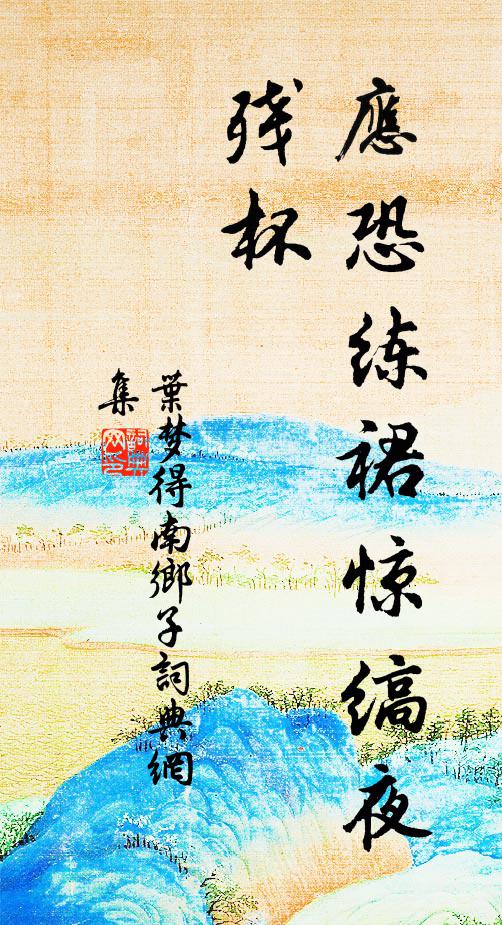 應恐练裙惊缟夜
残杯
葉梦得南鄉子詞典網
集